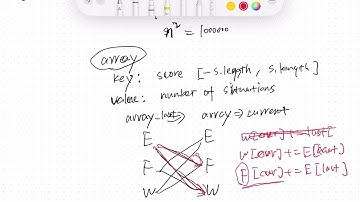 n² = 1000000
array
key: score [-s.length, s.length]
value: number of situations
array_last → array → current
E E
F F
W W
w[cur] += last[
w[cur] += E[last]
F[cur] += E[last]